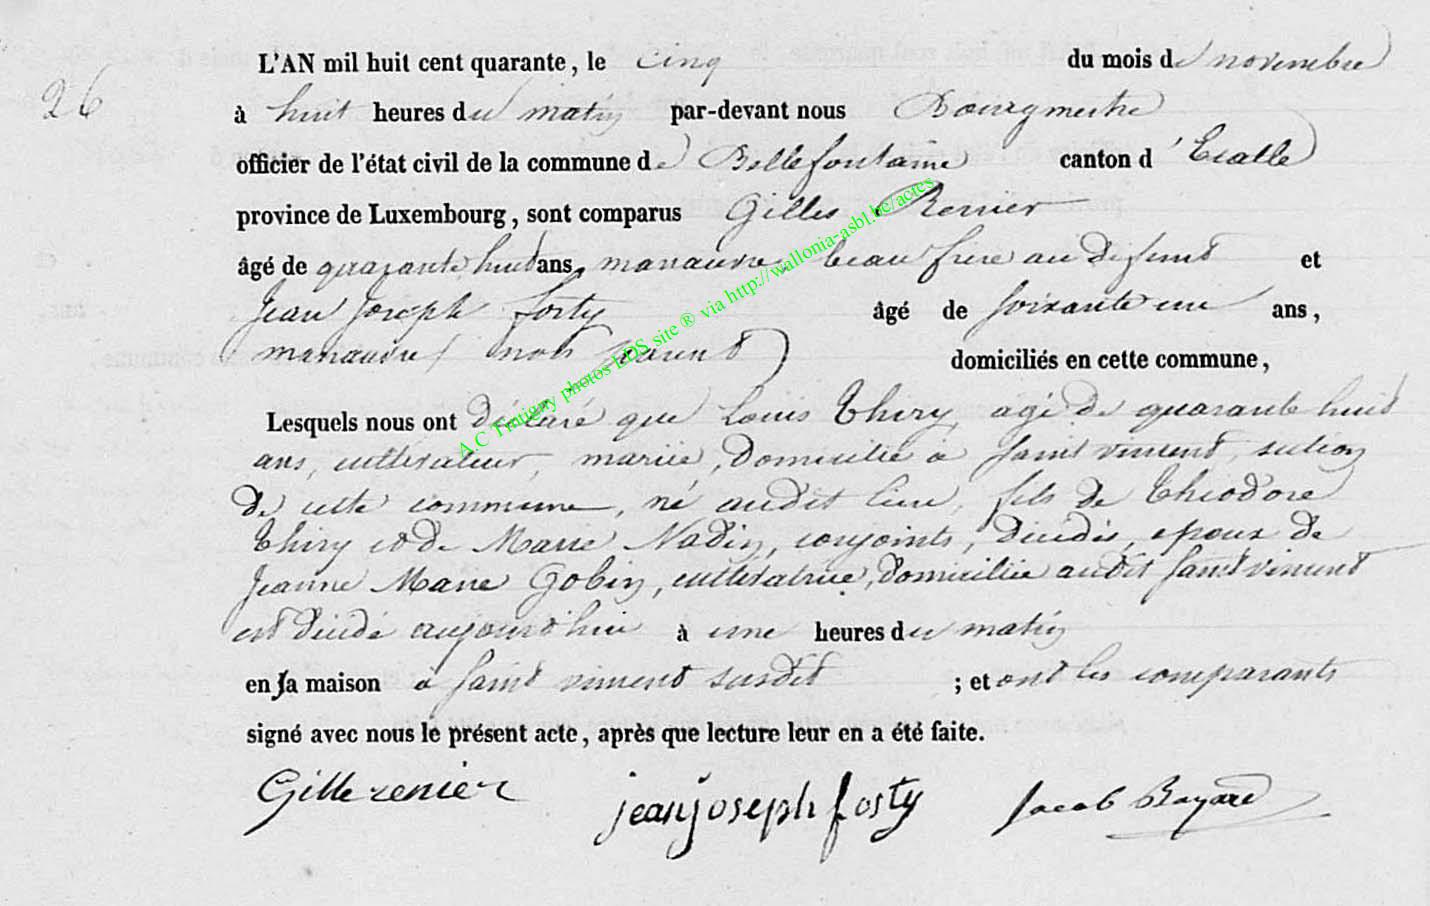 26
L'AN mil huit cent quarante, le cinq du mois de novembre
à huit heures du matin par-devant nous Bourgmestre
officier de l'état civil de la commune de Bellefontaine canton d'Etalle
province de Luxembourg, sont comparus Gilles Renier
âgé de quarante huit ans, manœuvre, beau frère au défunt et
Jean Joseph Fosty âgé de soixante un ans,
manœuvre (non parent) domiciliés en cette commune,
Lesquels nous ont déclaré que Louis Thiry, agé de quarante huit
ans, cultivateur, marié, domicilié à Saint vincent, section
de cette commune, né audit lieu, fils de Théodore
Thiry et de Marie Nadin, conjoints, décédés, epoux de
Jeanne Marie Gobin, cultivatrice, domiciliée audit Saint vincent
est décédé aujourd'hui à une heures du matin
en sa maison à Saint vincent susdit ; et ont les comparants
signé avec nous le présent acte, après que lecture leur en a été faite.
Gille renier jean joseph fosty Jacob Bayard
A.C Tintigny photos LDS site ® via http://wallonia-asbl.be/actes